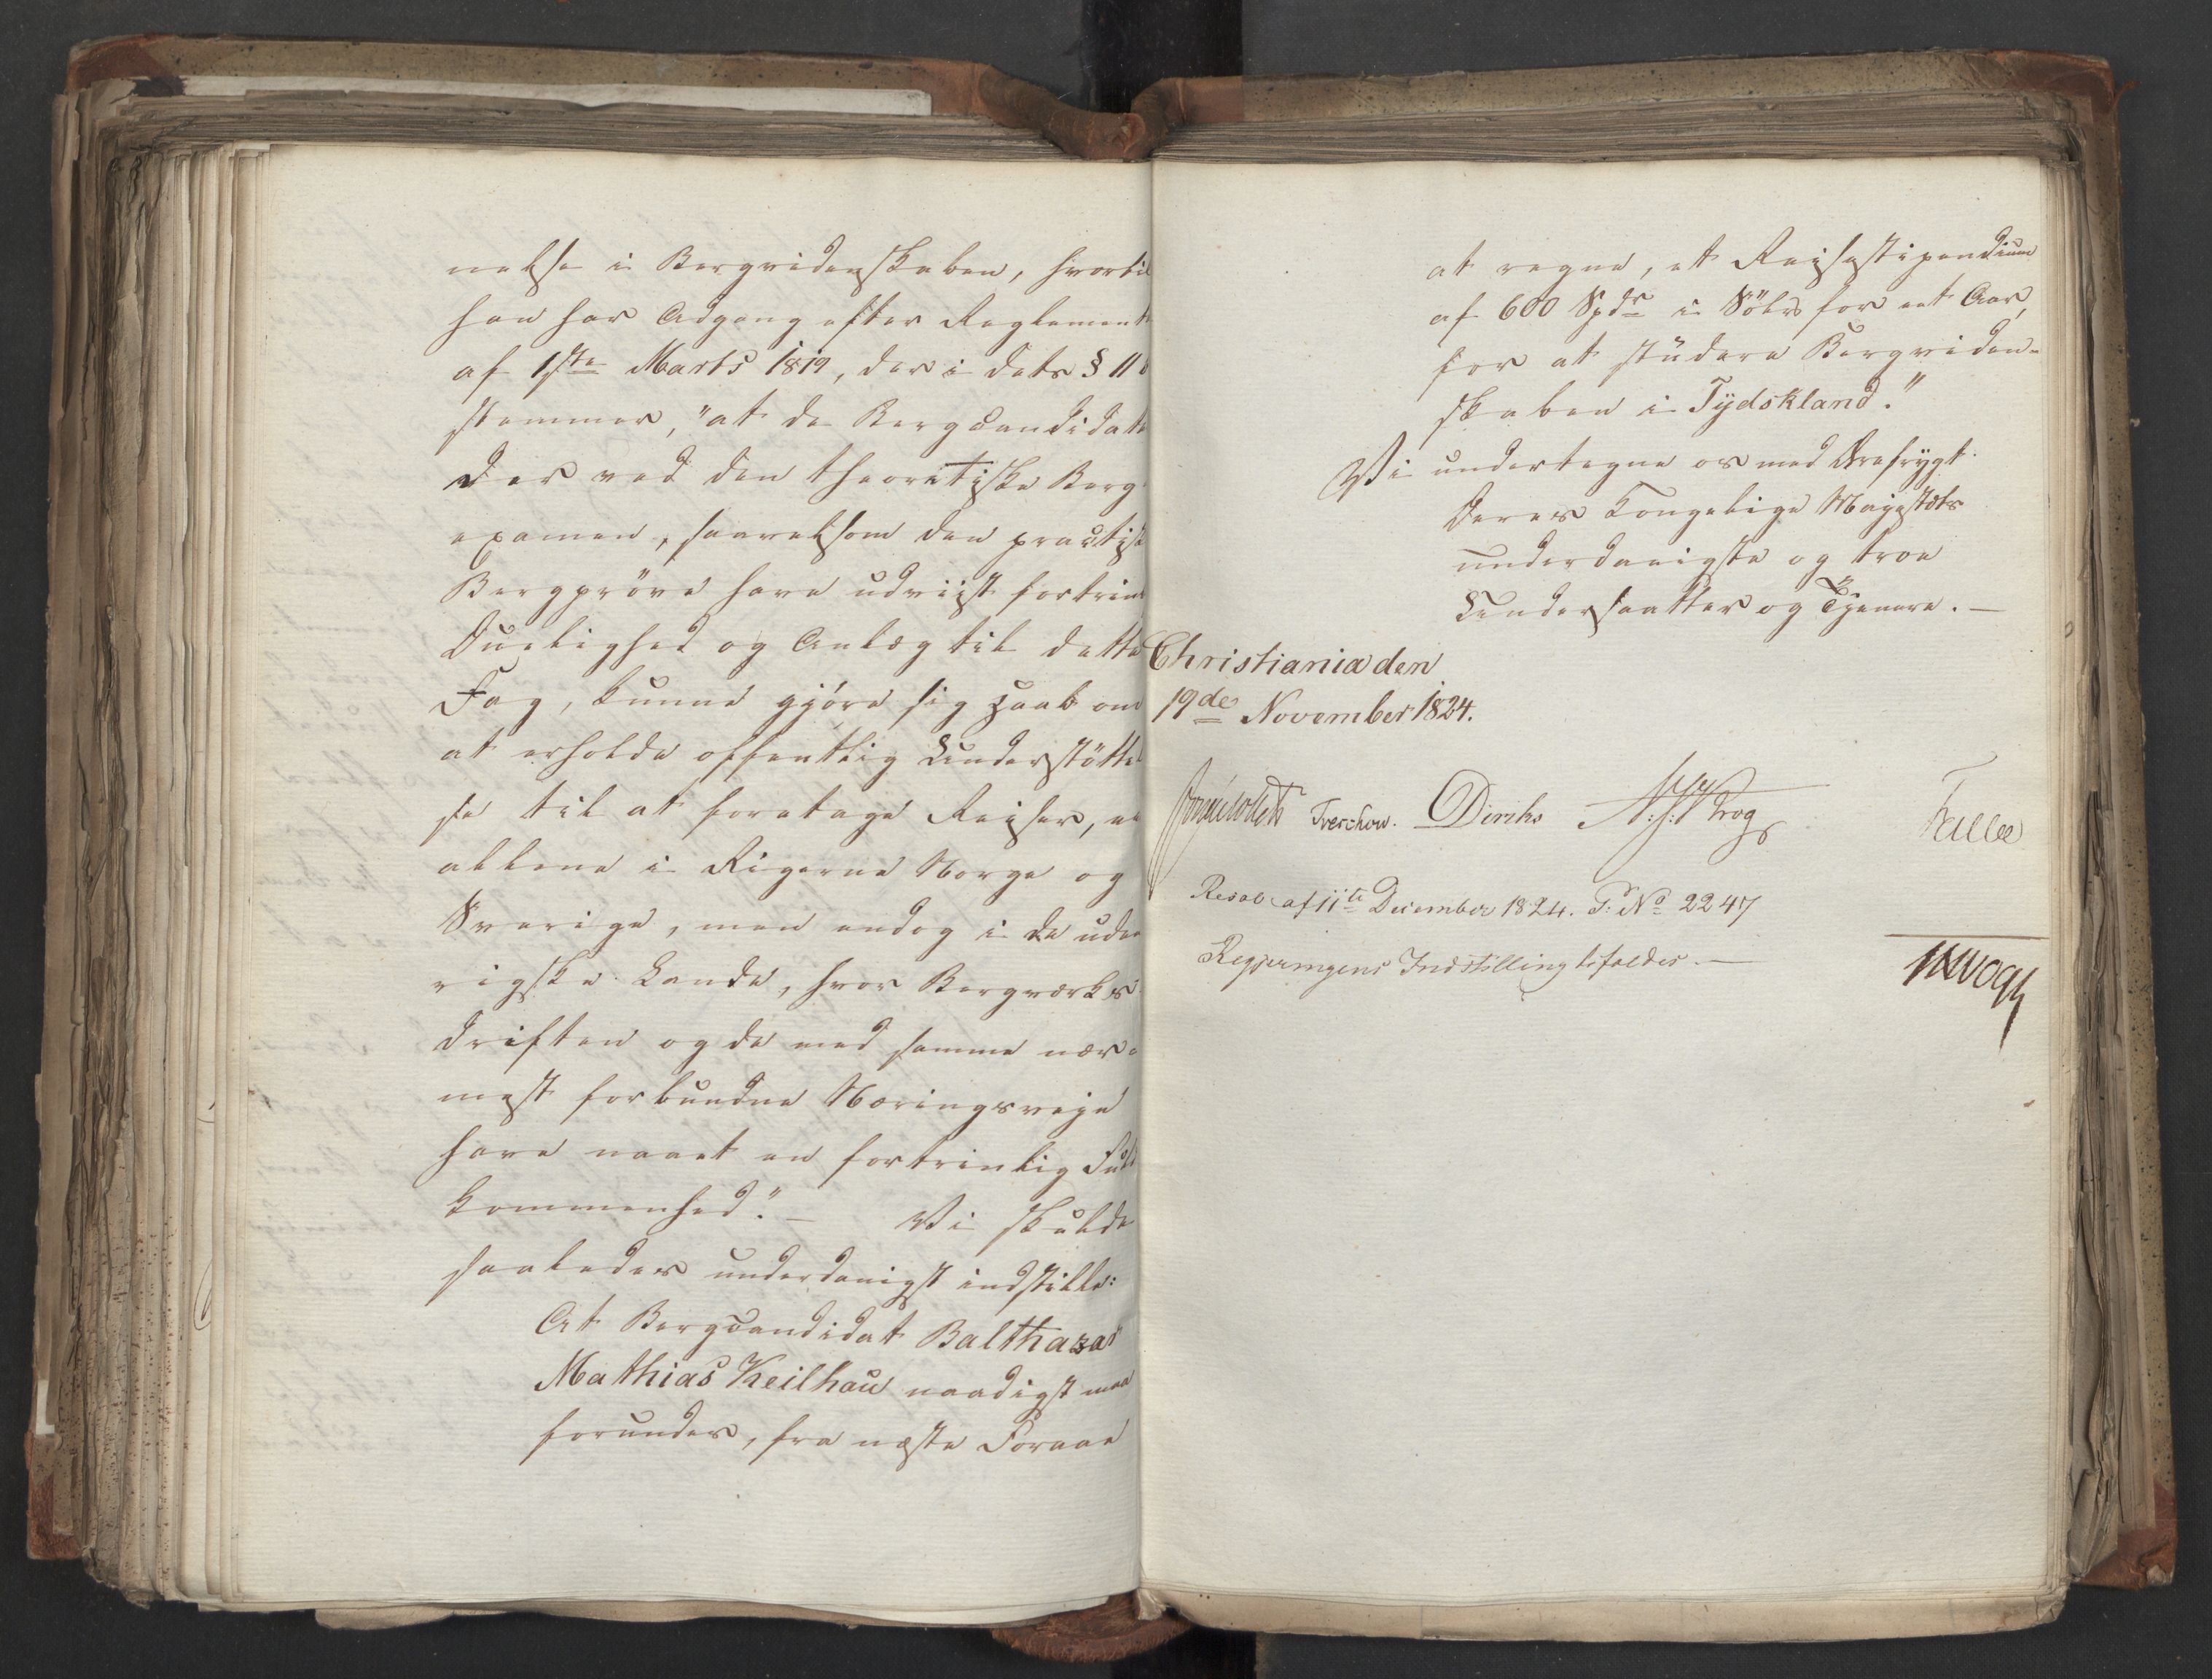 nelse i Bergvidenskaben, hvortil
han har Adgang efter Reglement
af 1ste Marts 1819, der i dets § 11 b
stemmer, "at de Bergcandidate
der ved den theoretiske Berg
examen, saavelsom den practiske
Bergpröve have udviist fortrin
Duelighed og Anlæg til dette
Fag, kunne gjöre sig Haab om
at erholde offentlig Understöttel
se til at foretage Reiser, ei
allene i Rigerne Norge og
Sverige, men endog i de uden
rigske Lande, hvor Bergværks
driften og de med samme nær-
mest forbundne Næringsveje
have naaet en fortrinlig Fuld
kommenhed." – Vi skulde
saaledes underdanigst indstille:
At Bergcandidat Balthazar
Mathias Keilhau naadigst maa
forundes, fra næste Foraar
at regne, et Reisestipendium
af 600 Spdr i Sölv for eet Aar,
for at studere Bergviden-
skaben i Tydskland."
Vi undertegne os med Ærefrygt
Deres Kongelige Majestæts
underdanigste og troe
Undersaatter og Tjenere. –
Christiania den
19de November 1824.
Treschow. Diriks Krog
Resol af 11te December 1824. P: No 2247
Regjeringens Indstilling bifaldes. –